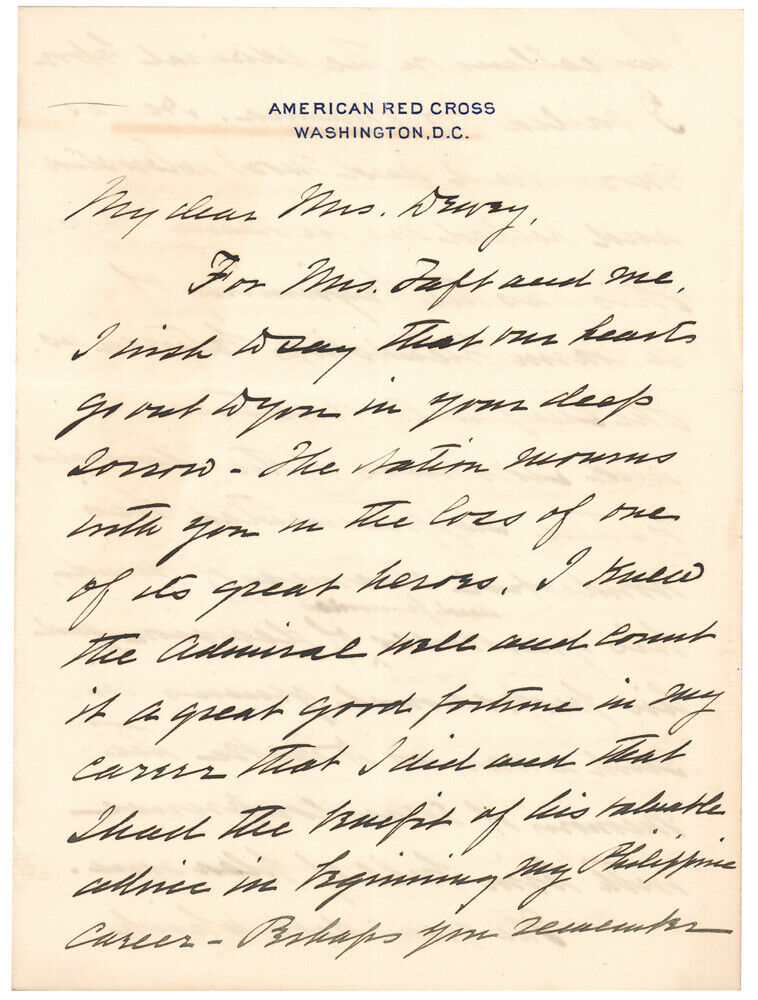 AMERICAN RED CROSS
WASHINGTON, D.C.
My dear Mrs. Dewey,
For Mrs. Taft and me,
I wish to say that our hearts
go out to you in your deep
sorrow - The Nation mourns
with you in the loss of one
of its great heroes. I knew
the Admiral well and count
it a great good fortune in my
career that I did and that
I had the benefit of his valuable
advice in beginning my Philippine
career - Perhaps you remember